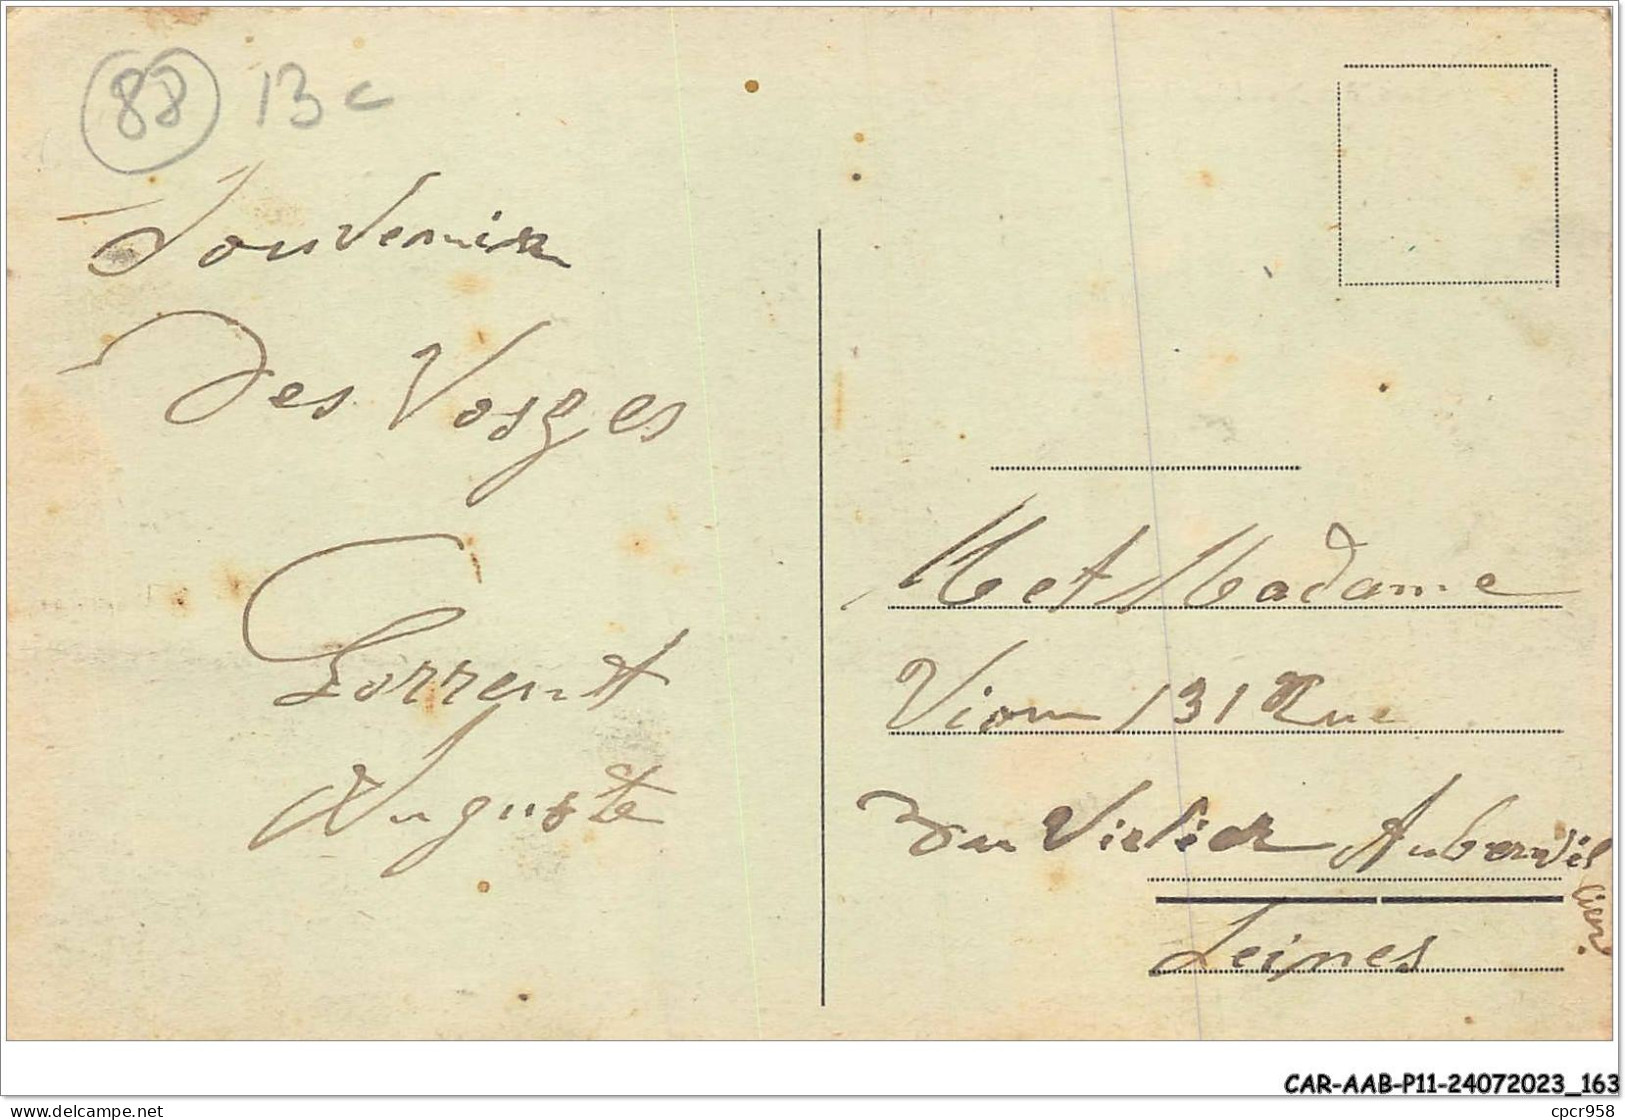 88 13c
Souvenir
Des Vosges
Lorrent
Auguste
M et Madame
Viom 131 Rue
Du Vivier Aubervil
liers
Seines
CAR-AAB-P11-24072023_163
delcampe.net
cpcr958